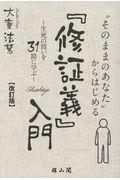 “そのままのあなた”
からはじめる
『修証義』入門
Shushogi
～生死の問いを
31節に学ぶ～
【改訂版】
大童法慧
雄山閣